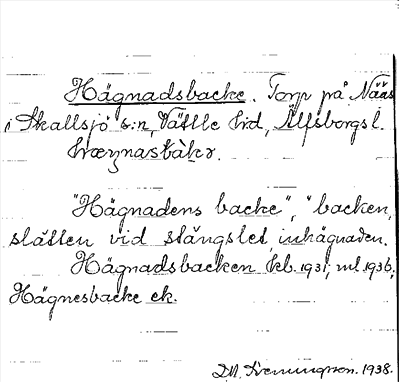 Hägnadsbacke. Torp på Nääs
i Skallsjö s:n, Vättle hd, Älfsborgs l.
"Hägnadens backe", "backen,
slätten vid stängslet, inhägnaden.
Hägnadsbacken kb. 1931, ml. 1936,
Hägnesbacke ek.
1938.